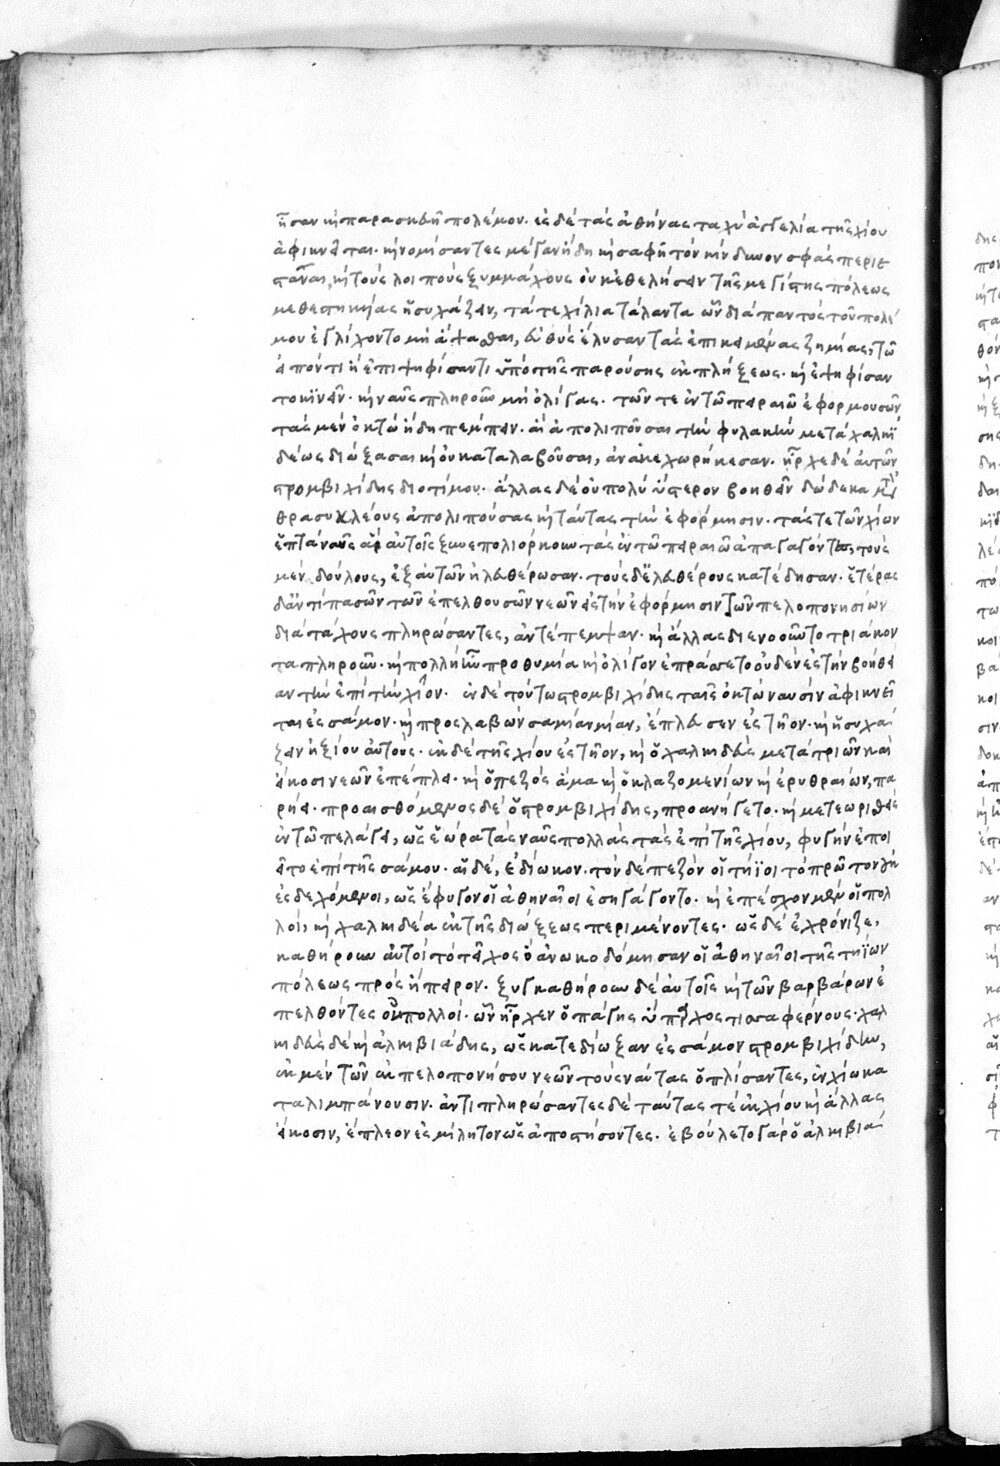 ἦσαν καὶ παρασκευῇ πολέμου. ἐς δὲ τὰς ἀθήνας ταχὺ ἀγγελία τῆς χίου
ἀφικνεῖται. καὶ νομίσαντες μέγαν ἤδη καὶ σαφῆ τὸν κίνδυνον σφᾶς περιε
στᾶναι, καὶ τοὺς λοιποὺς ξυμμάχους οὐκ ἐθελήσειν τῆς μεγίστης πόλεως
μεθεστηκυίας ἡσυχάζειν, τά τε χίλια τάλαντα ὧν διὰ παντὸς τοῦ πολέ
μου ἐγλίχοντο μὴ ἅψασθαι, εὐθὺς ἔλυσαν τὰς ἐπικειμένας ζημίας, τῷ
εἰπόντι ἢ ἐπιψηφίσαντι ὑπὸ τῆς παρούσης ἐκπλήξεως. καὶ ἐψηφίσαν
το κινεῖν. καὶ ναῦς πληροῦν μὴ ὀλίγας. τῶν τε ἐν τῷ πειραιῶ ἐφορμουσῶν
τὰς μὲν ὀκτὼ ἤδη πέμπειν. αἳ ἀπολιποῦσαι τὴν φυλακὴν μετὰ χαλκι
δέως διώξασαι καὶ οὐ καταλαβοῦσαι, ἀνακεχωρήκεσαν. ἦρχε δὲ αὐτῶν
στρομβιχίδης διοτίμου. ἄλλας δὲ οὐ πολὺ ὕστερον βοηθεῖν δώδεκα μετὰ
θρασυκλέους ἀπολιπούσας καὶ ταύτας τὴν ἐφόρμησιν. τάς τε τῶν χίων
ἑπτὰ ναῦς αἳ αὐτοῖς ξυνεπολιόρκουν τὰς ἐν τῷ πειραιῶ ἀπαγαγόντες, τοὺς
μὲν δούλους, ἐξ αὐτῶν ἠλευθέρωσαν. τοὺς δ' ἐλευθέρους κατέδησαν. ἑτέρας
δ' ἀντὶ πασῶν τῶν ἀπελθουσῶν νεῶν ἐς τὴν ἐφόρμησιν τῶν πελοπονησίων
διὰ τάχους πληρώσαντες, ἀντέπεμψαν. καὶ ἄλλας διενοοῦντο τριάκον
τα πληροῦν. καὶ πολλὴ ἦν προθυμία καὶ ὀλίγον ἐπράσσετο οὐδὲν ἐς τὴν βοήθει
αν τὴν ἐπὶ τὴν χίον. ἐν δὲ τούτῳ στρομβιχίδης ταῖς ὀκτὼ ναυσὶν ἀφικνεῖ
ται ἐς σάμον. καὶ προσλαβὼν σαμίαν μίαν, ἔπλευσεν ἐς τῆον. καὶ ἡσυχά
ζειν ἠξίου αὐτούς. ἐκ δὲ τῆς χίου ἐς τῆον, καὶ ὁ χαλκιδεὺς μετὰ τριῶν καὶ
εἴκοσι νεῶν ἐπέπλει. καὶ ὁ πεζὸς ἅμα καὶ ὁ κλαζομενίων καὶ ἐρυθραίων, πα
ρῄει. προαισθόμενος δὲ ὁ στρομβιχίδης, προανήγετο. καὶ μετεωρισθεὶς
ἐν τῷ πελάγει, ὡς ἑώρα τὰς ναῦς πολλὰς τὰς ἐπὶ τῆς χίου, φυγὴν ἐποι
εῖτο ἐπὶ τῆς σάμου. αἱ δὲ, ἐδίωκον. τὸν δὲ πεζὸν οἱ τήϊοι τὸ πρῶτον οὐκ
ἐσδεχόμενοι, ὡς ἔφυγον οἱ ἀθηναῖοι ἐσηγάγοντο. καὶ ἐπέσχον μὲν οἱ πολ
λοὶ, καὶ χαλκιδέα ἐκ τῆς διώξεως περιμένοντες. ὡς δὲ ἐχρόνιζε,
καθῄρουν αὐτοὶ τὸ τεῖχος ὃ ἀνωκοδόμησαν οἱ ἀθηναῖοι τῆς τηΐων
πόλεως πρὸς ἤπειρον. ξυγκαθῄρουν δὲ αὐτοῖς καὶ τῶν βαρβάρων ἐ
πελθόντες οὐ πολλοί. ὧν ἦρχεν ὁ στάγης ὕπαρχος τισσαφέρνους. χαλ
κιδεὺς δὲ καὶ ἀλκιβιάδης, ὡς κατεδίωξαν ἐς σάμον στρομβιχίδην,
ἐκ μὲν τῶν ἐκ πελοπονήσου νεῶν τοὺς ναύτας ὁπλίσαντες, ἐν χίῳ κα
ταλιμπάνουσιν. ἀντιπληρώσαντες δὲ ταύτας τε ἐκ χίου καὶ ἄλλας
εἴκοσιν, ἔπλεον ἐς μίλητον ὡς ἀποστήσοντες. ἐβούλετο γὰρ ὁ ἀλκιβιά